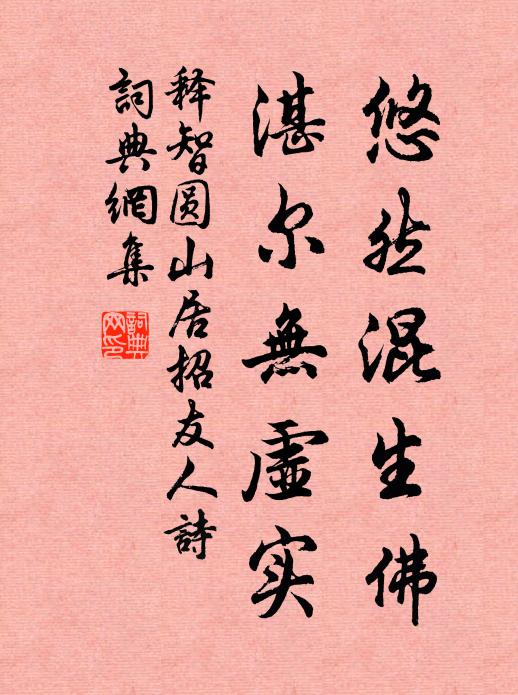 悠然混生佛
湛尔無虛实
释智圆山居招友人詩
詞典網集
詞典网印